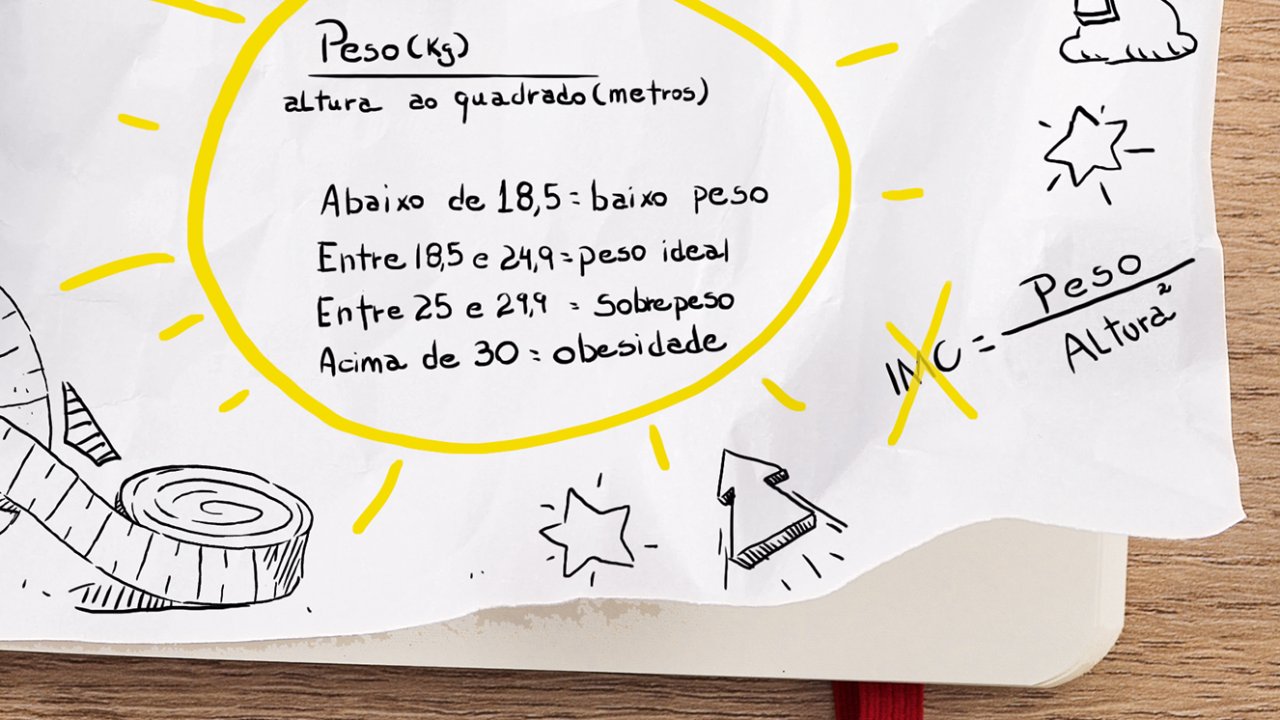 Peso (Kg)
altura ao quadrado (metros)
Abaixo de 18,5 = baixo peso
Entre 18,5 e 24,9 = peso ideal
Entre 25 e 29,9 = Sobrepeso
Acima de 30 = obesidade
IMC = Peso
Altura²